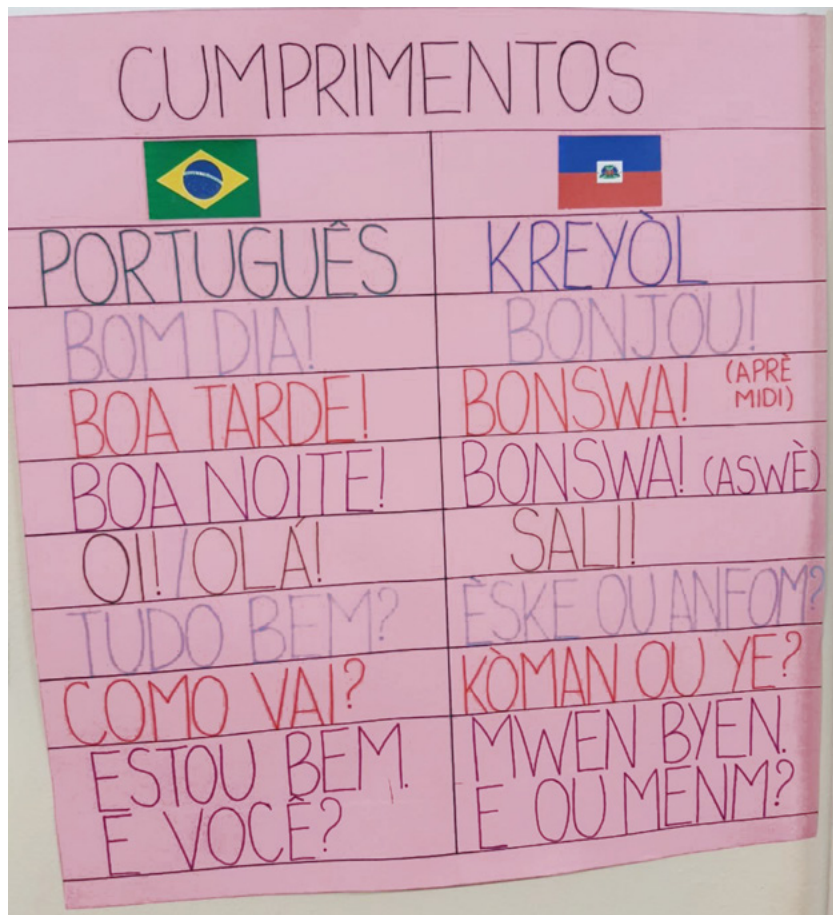 CUMPRIMENTOS
PORTUGUÊS KREYÒL
BOM DIA! BONJOU!
BOA TARDE! BONSWA! (APRÈ MIDI)
BOA NOITE! BONSWA! (ASWÈ)
OI!/OLÁ! SALI!
TUDO BEM? ÈSKE OU ANFOM?
COMO VAI? KÒMAN OU YE?
ESTOU BEM. MWEN BYEN.
E VOCÊ? E OU MENM?